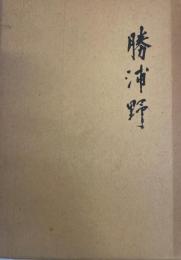 勝浦野